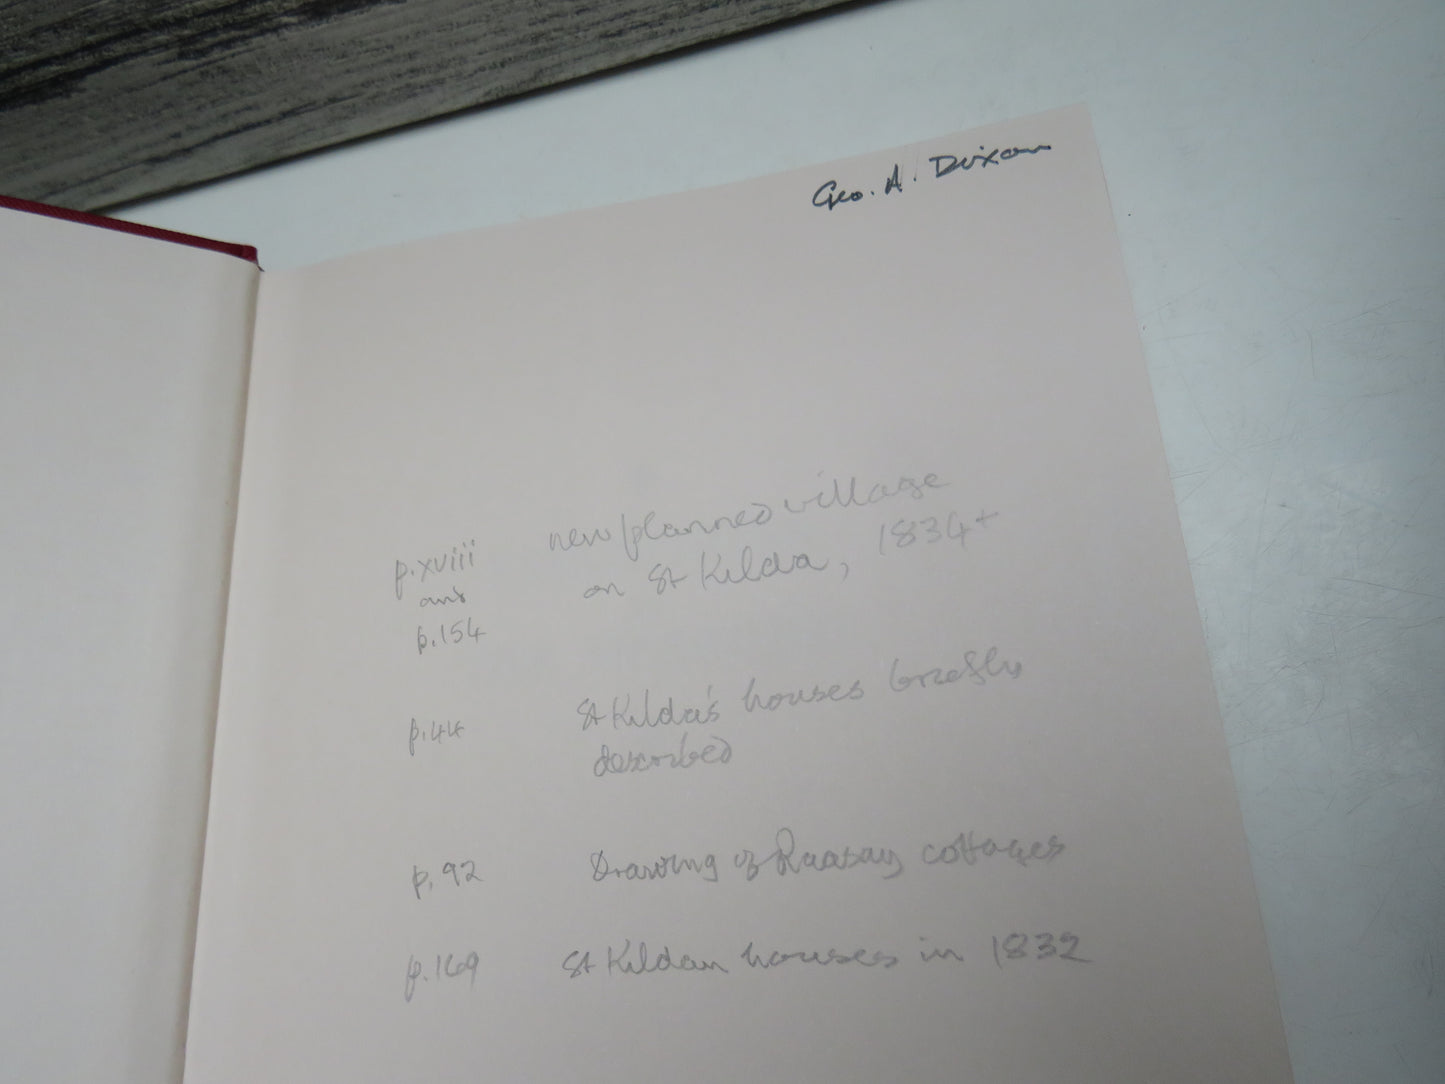 Geo. A. Dixon
p.xviii and p.154 new planned village
on St Kilda, 1834+
p.44 St Kilda's houses briefly
described
p.92 Drawing of Raasay cottages
p.169 St Kildan houses in 1832